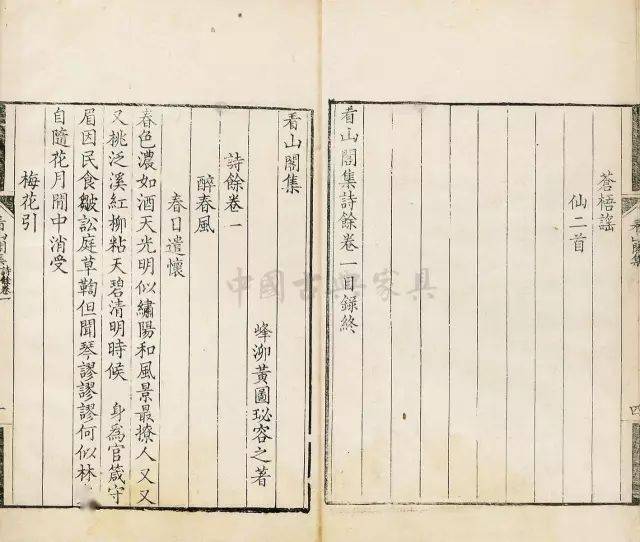 蒼梧謠
仙二首
看山閣集詩餘卷一目録終
看山閣集
四
看山閣集
峰泖黃圖珌容之著
詩餘卷一
醉春風
春日遣懷
春色濃如酒天光明似繡陽和風景最撩人又又
又挑泛溪紅柳粘天碧清明時候 身爲官箴守
眉因民食皺訟庭草鞫但聞琴謬謬謬何似林
自隨花月閒中消受
梅花引
看山閣集
詩餘卷一
一
中國古典家具